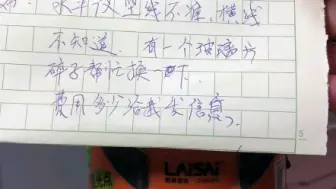 水平仪竖线不准,横线
不知道. 有一个玻璃片
碎了帮忙换一下.
费用多少给我发信息.
5
LAiSAi